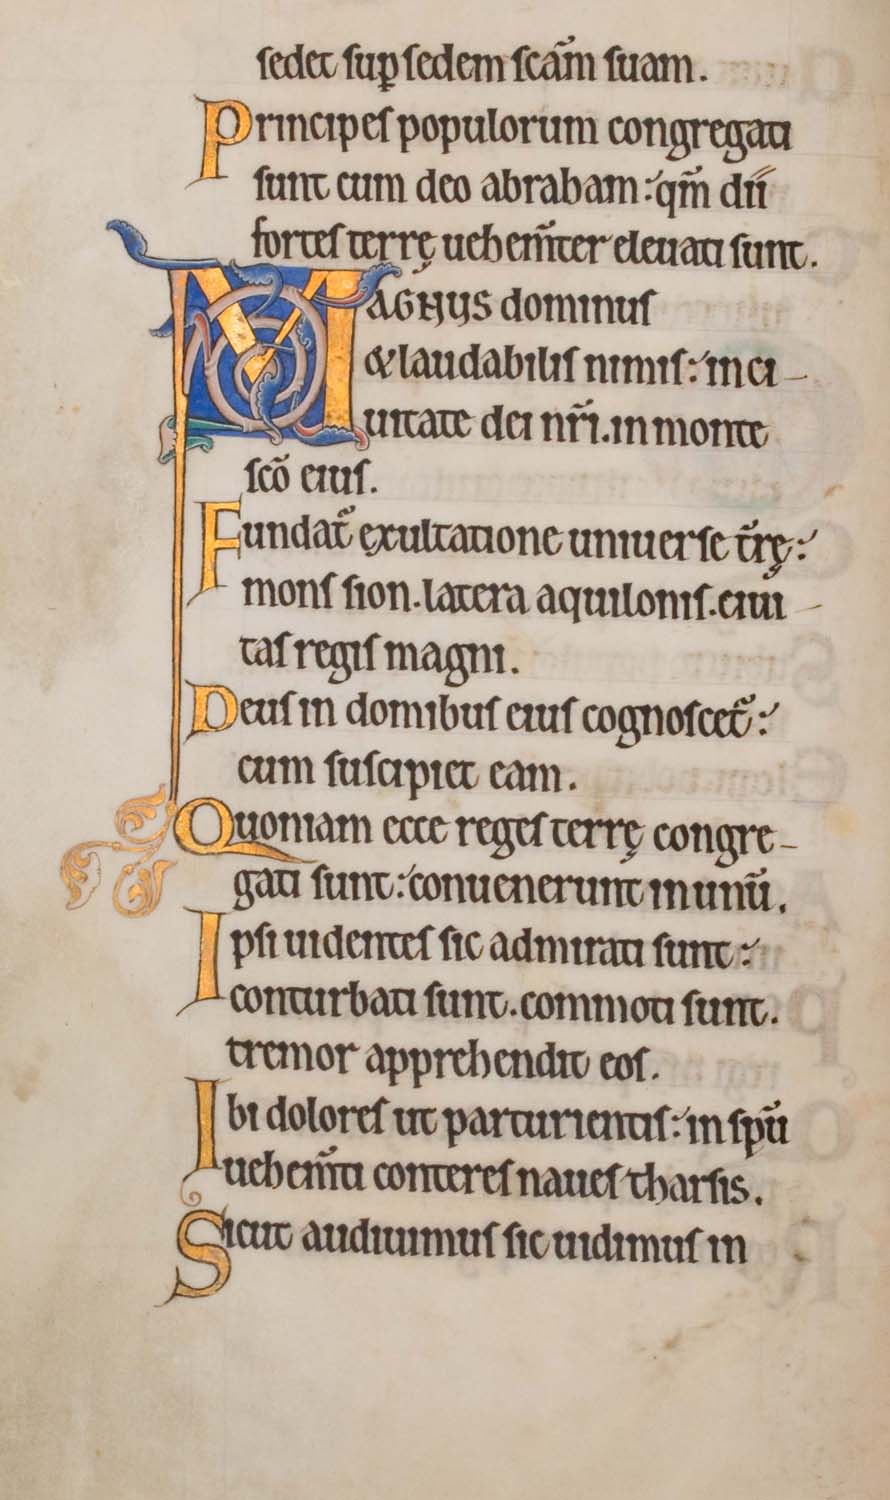 sedet sup̱ sedem sc̄am suam.
Principes populorum congregati
sunt cum deo abraham: qm̄ dii
fortes terrę uehem̄ter eleuati sunt.
MAGNUS dominus
& laudabilis nimis: in ci-
uitate dei nr̄i. in monte
scō eius.
Fundat̄ exultatione uniuerse t̄rę:
mons sion. latera aquilonis. ciui-
tas regis magni.
Deus in domibus eius cognoscet̄:
cum suscipiet eam.
Quoniam ecce reges terrę congre-
gati sunt: conuenerunt in unū.
Ipsi uidentes sic admirati sunt:
conturbati sunt. commoti sunt.
tremor apprehendit eos.
Ibi dolores ut parturientis: in spū
uehem̄ti conteres naues tharsis.
Sicut audiuimus sic uidimus in